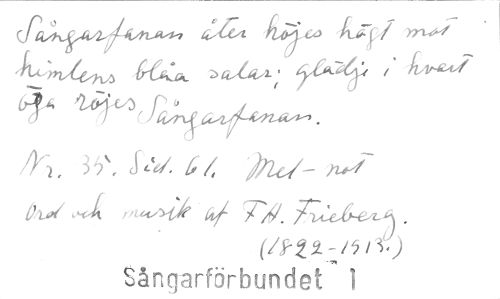 Sångarfanan åter höjes högt mot
himlens blåa salar; glädje i hvart
öga röjes Sångarfanan.
Nr. 35. Sid. 61. Mel-not
Ord och musik af F.H. Frieberg.
(1822-1913.)
Sångarförbundet 1